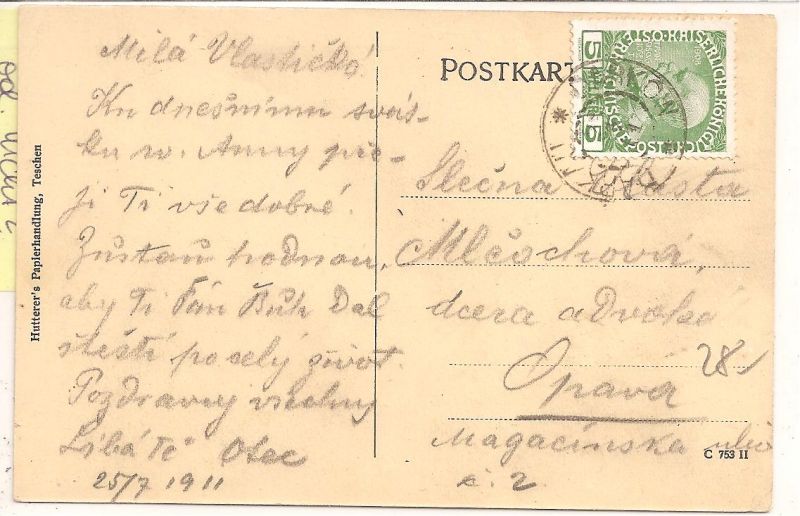 Milá Vlastičko!
Ku dnešnímu svát-
ku sv. Anny pře-
ji Ti vše dobré.
Zůstaň hodnou,
aby Ti Pán Bůh Dal
štěstí po celý život.
Pozdravuj všechny
Líbá Tě Otec
25/7 1911
Hutterer's Papierhandlung, Teschen
POSTKART
5
5
Slečna Vlasta
Mlčochová,
dcera advoka
28/
Opava
Magacínska ulice
č. 2
C 753 II